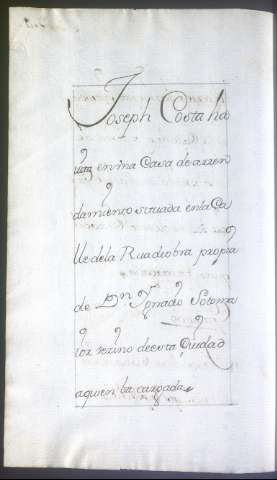 Joseph Costa ha
vita en vna Casa de arren
damiento situada en la Ca
lle de la Rua de obra propia
de Dn Ignacio
vezino de esta Ciudad
a quien ba cargada